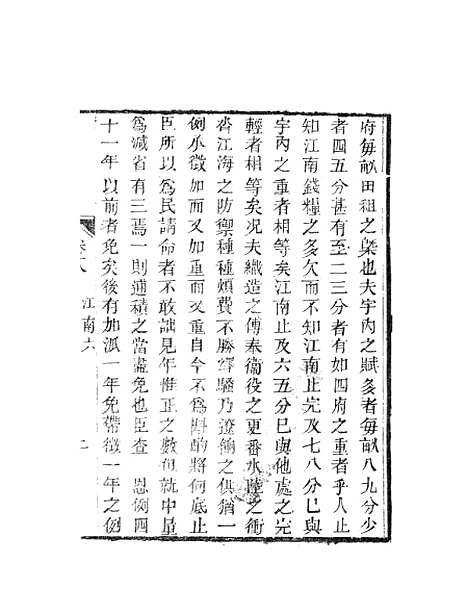 府每畝田租之槩也夫宇內之賦多者每畝八九分少
者四五分甚有至二三分者有如四府之重者乎人止
知江南錢糧之多欠而不知江南止完及七八分已與
宇內之重者相等矣江南止及六五分已與他處之完
輕者相等矣况夫織造之傅奉衞役之更番水陸之衝
沓江海之防禦種種煩費不勝繹騷乃遼餉之供猶一
例派徵加而又加重而又重自今不為斟酌將何底止
臣所以為民請命者不敢詘見年惟正之數但就中量
為減省有三焉一則逋積之當盡免也臣查 恩例四
十一年以前者免矣後有加派一年免帶徵一年之例
卷八
江南六
二